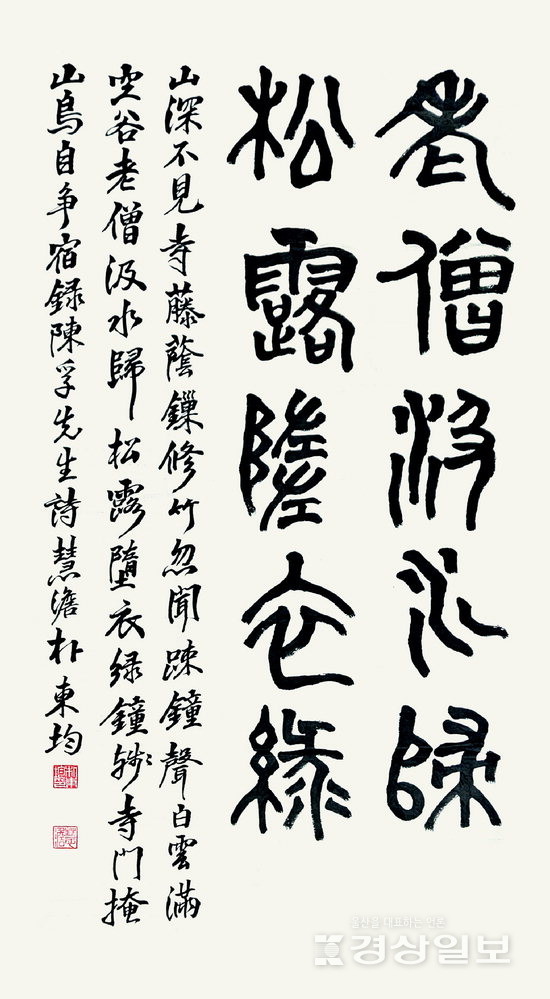 老僧汲水歸
松露墮衣綠
山深不見寺藤蔭鎖修竹忽聞踈鐘聲白雲滿
空谷老僧汲水歸松露墮衣綠鐘殘寺門掩
山鳥自爭宿錄陳孚先生詩慧澹朴東均
울산을 대표하는 신문
경상일보